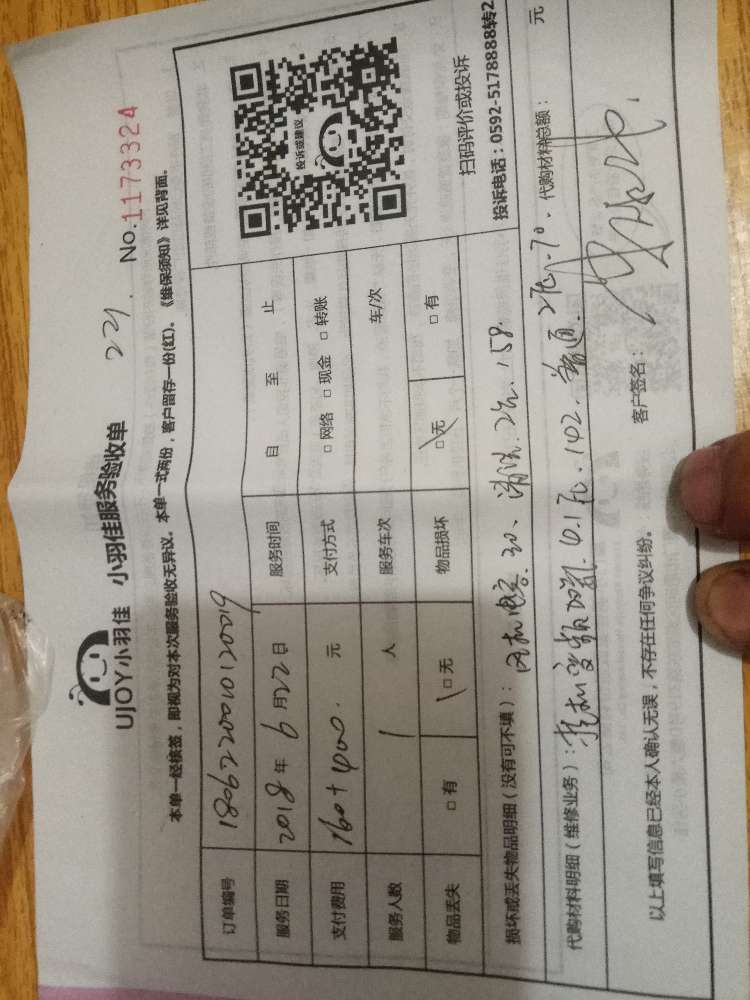 UJOY小羽佳 小羽佳服务验收单 221. No.1173324
本单一经核签，即视为对本次服务验收无异议。本单一式两份，客户留存一份(红)。《维保须知》详见背面。
订单编号
服务日期 2018年6月22日 服务时间 自 至 止
支付费用 160+400. 元 支付方式 □网络 □现金 □转账
服务人数 1 人 服务车次 车/次
物品丢失 □有 □无 物品损坏 □无 □有
投诉或建议
扫码评价或投诉
投诉电话：0592-5178888转2
损坏或丢失物品明细（没有可不填）： 风机电容. 30、清洗. 2台. 158.
代购材料明细（维修业务）： 1台. 142. 普通. 70. 代购材料总额： 元
以上填写信息已经本人确认无误，不存在任何争议纠纷。 客户签名：